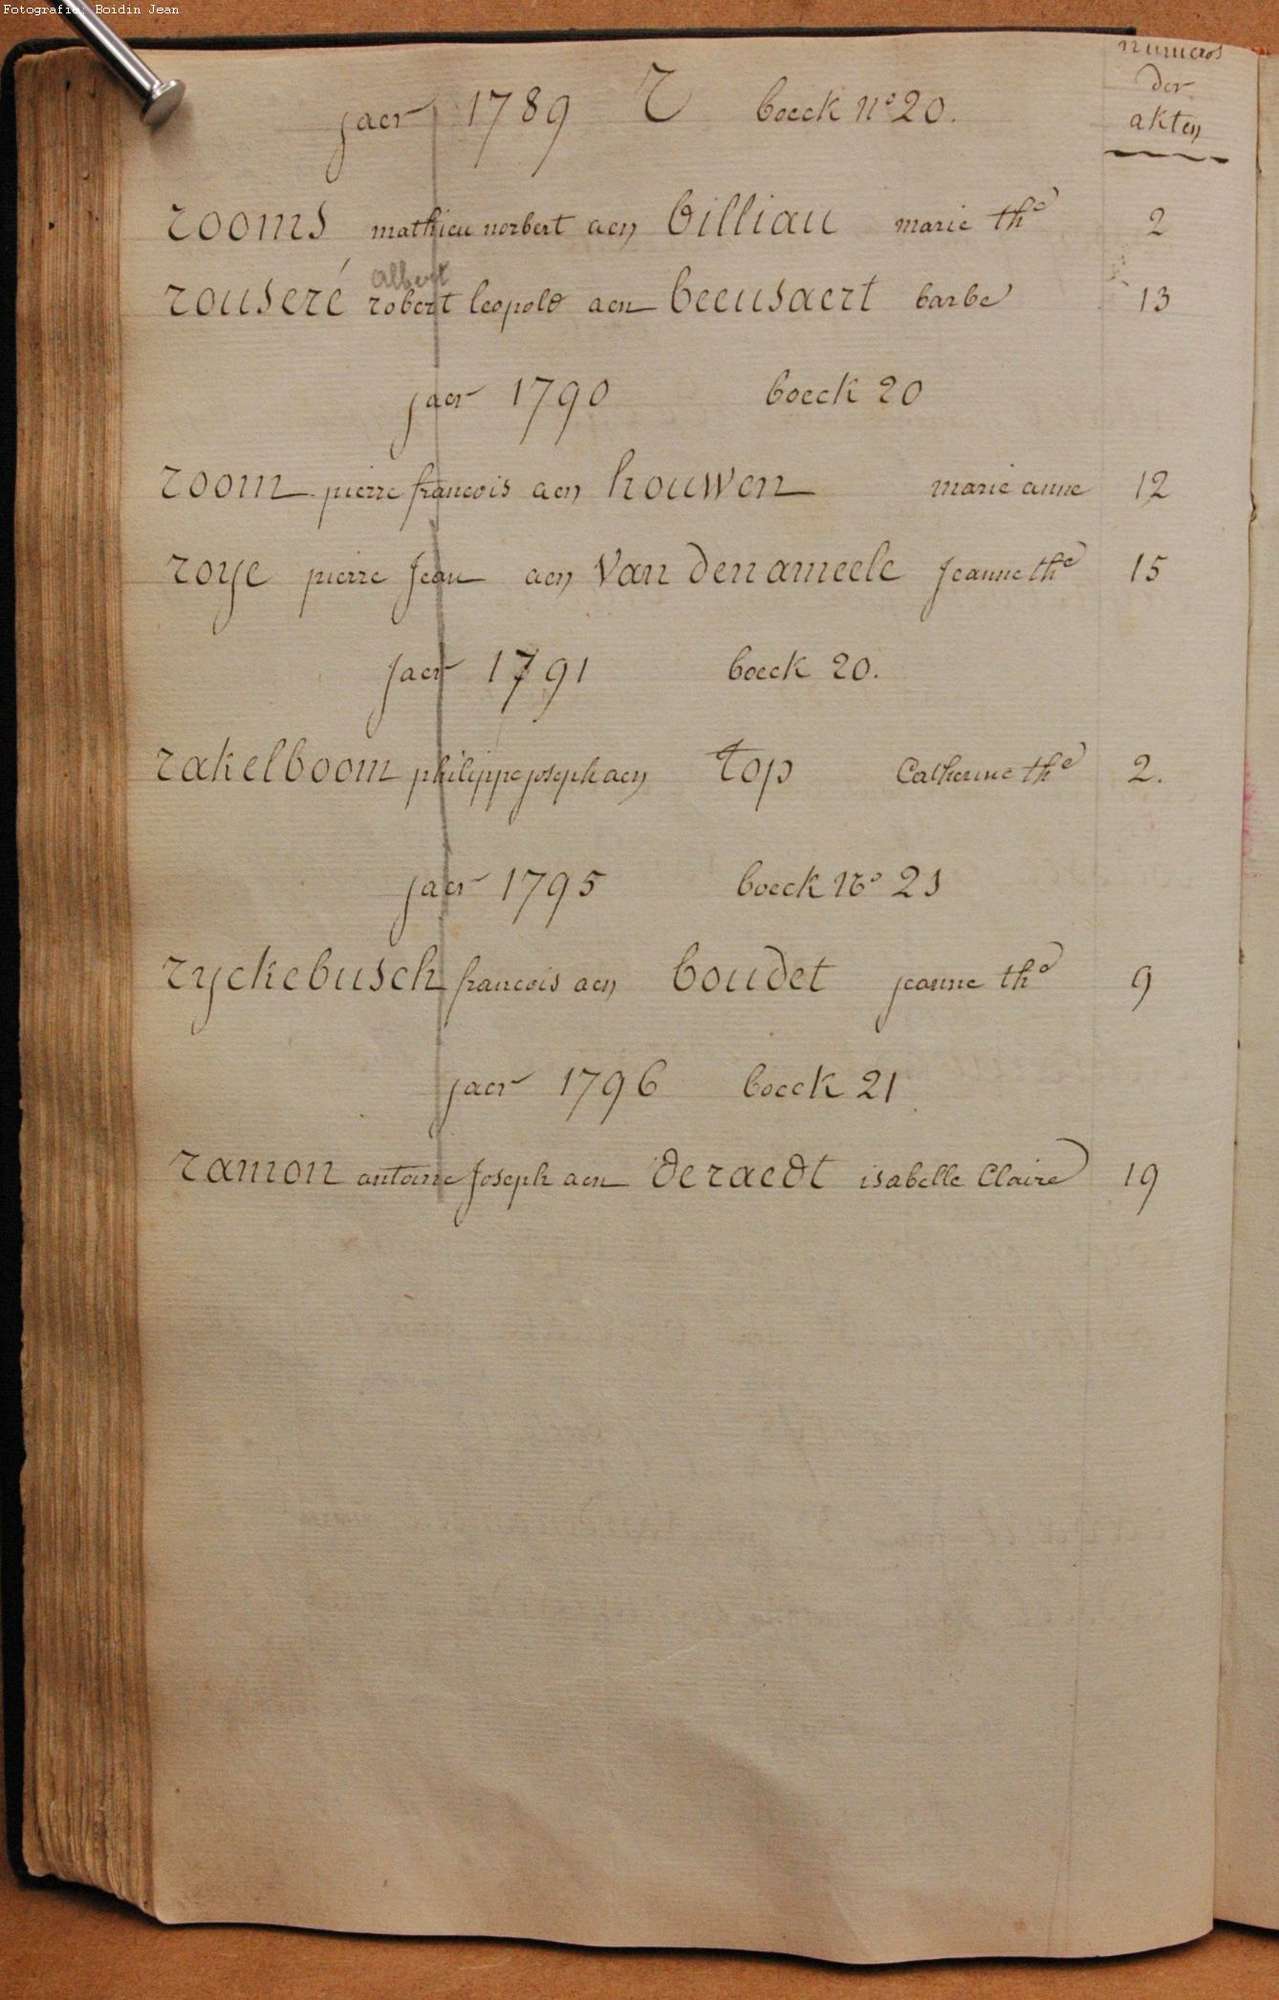 Fotografie: Boidin Jean
numeros
der
akten
jaer 1789 r boeck n° 20.
rooms mathieu norbert aen billiau marie th^e 2
albert
rouseré robert leopold aen beeusaert barbe 13
jaer 1790 boeck 20
room pierre francois aen houwen marie anne 12
roye pierre jean aen van den ameele jeanne th^e 15
jaer 1791 boeck 20.
rakelboom philippe joseph aen top Catherine th^e 2.
jaer 1795 boeck N° 21
ryckebusch francois aen boudet jeanne th^e 9
jaer 1796 boeck 21
ramon antoine joseph aen deraedt isabelle Claire 19